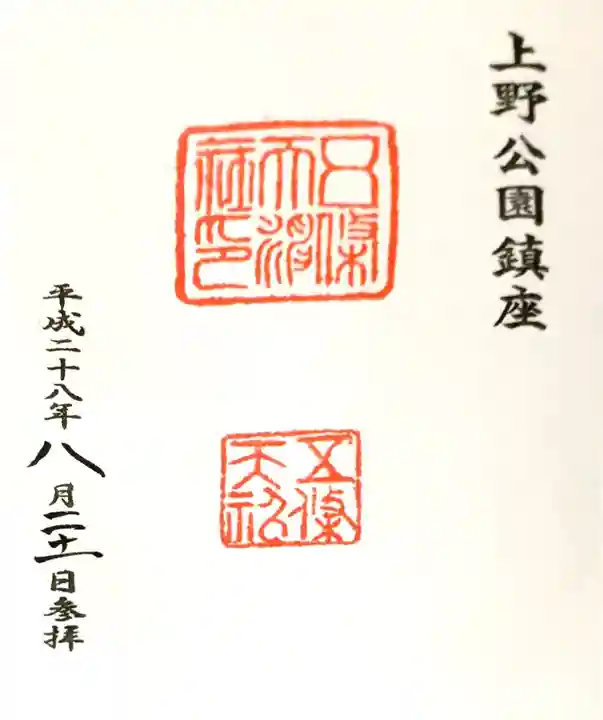 上野公園鎮座
五條
天神
社印
五條
天
平成二十八年八月二十一日参拝